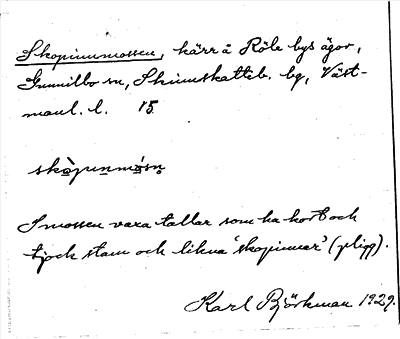 Skopinnmossen, kärr å Röle bys ägor,
Gunnilbo sn, Skinnskatteb. bg, Väst-
manl. l. 15.
skòpinmósn
I mossen vara tallar som ha kort och
tjock stam och likna 'skopinnar' (pligg).
Karl Björkman 1929.